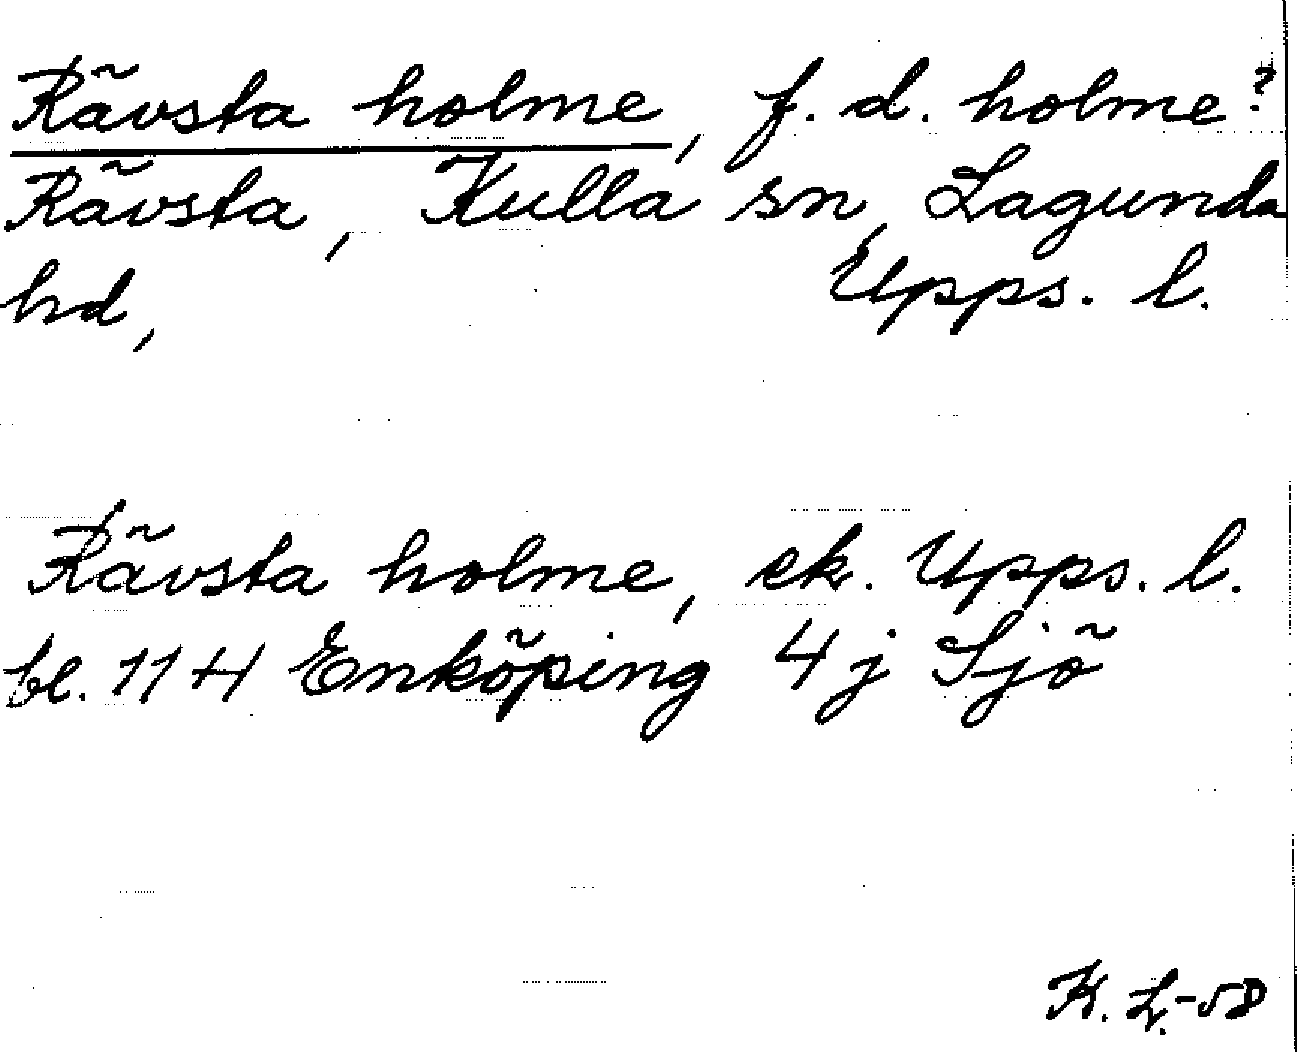 Rävsta holme, f. d. holme?
Rävsta, Kulla sn, Lagunda
hd, Upps. l.
Rävsta holme, ek. Upps. l.
bl. 11 H Enköping 4 j Sjö
K. L.-50